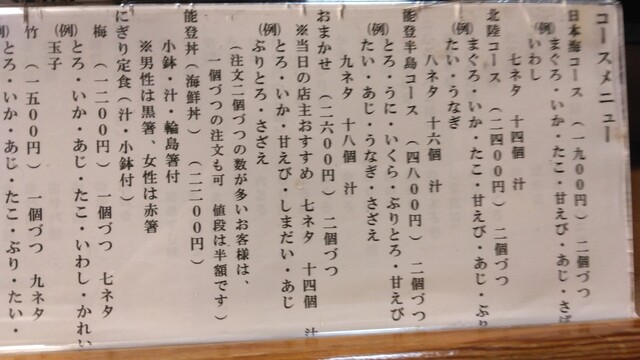 コースメニュー
日本海コース （一九〇〇円） 二個づつ
七ネタ 十四個 汁
（例） まぐろ・いか・たこ・甘えび・あじ・さば
いわし
北陸コース （二四〇〇円） 二個づつ
八ネタ 十六個 汁
（例） まぐろ・いか・たこ・甘えび・あじ・ぶり
たい・うなぎ
能登半島コース （四八〇〇円） 二個づつ
九ネタ 十八個 汁
（例） とろ・うに・いくら・ぶりとろ・甘えび
たい・あじ・うなぎ・さざえ
おまかせ （二六〇〇円） 二個づつ
※当日の店主おすすめ 七ネタ 十四個 汁
（例） とろ・いか・甘えび・しまだい・あじ
ぶりとろ・さざえ
（注文二個づつの数が多いお客様は、
一個づつの注文も可 値段は半額です）
能登丼（海鮮丼） （二二〇〇円）
小鉢・汁・輪島箸付
※男性は黒箸、女性は赤箸
にぎり定食（汁・小鉢付）
梅 （一二〇〇円） 一個づつ 七ネタ
（例） とろ・いか・あじ・たこ・いわし・かれい
玉子
竹 （一五〇〇円） 一個づつ 九ネタ
例） とろ・いか・あじ・たこ・ぶり・たい・